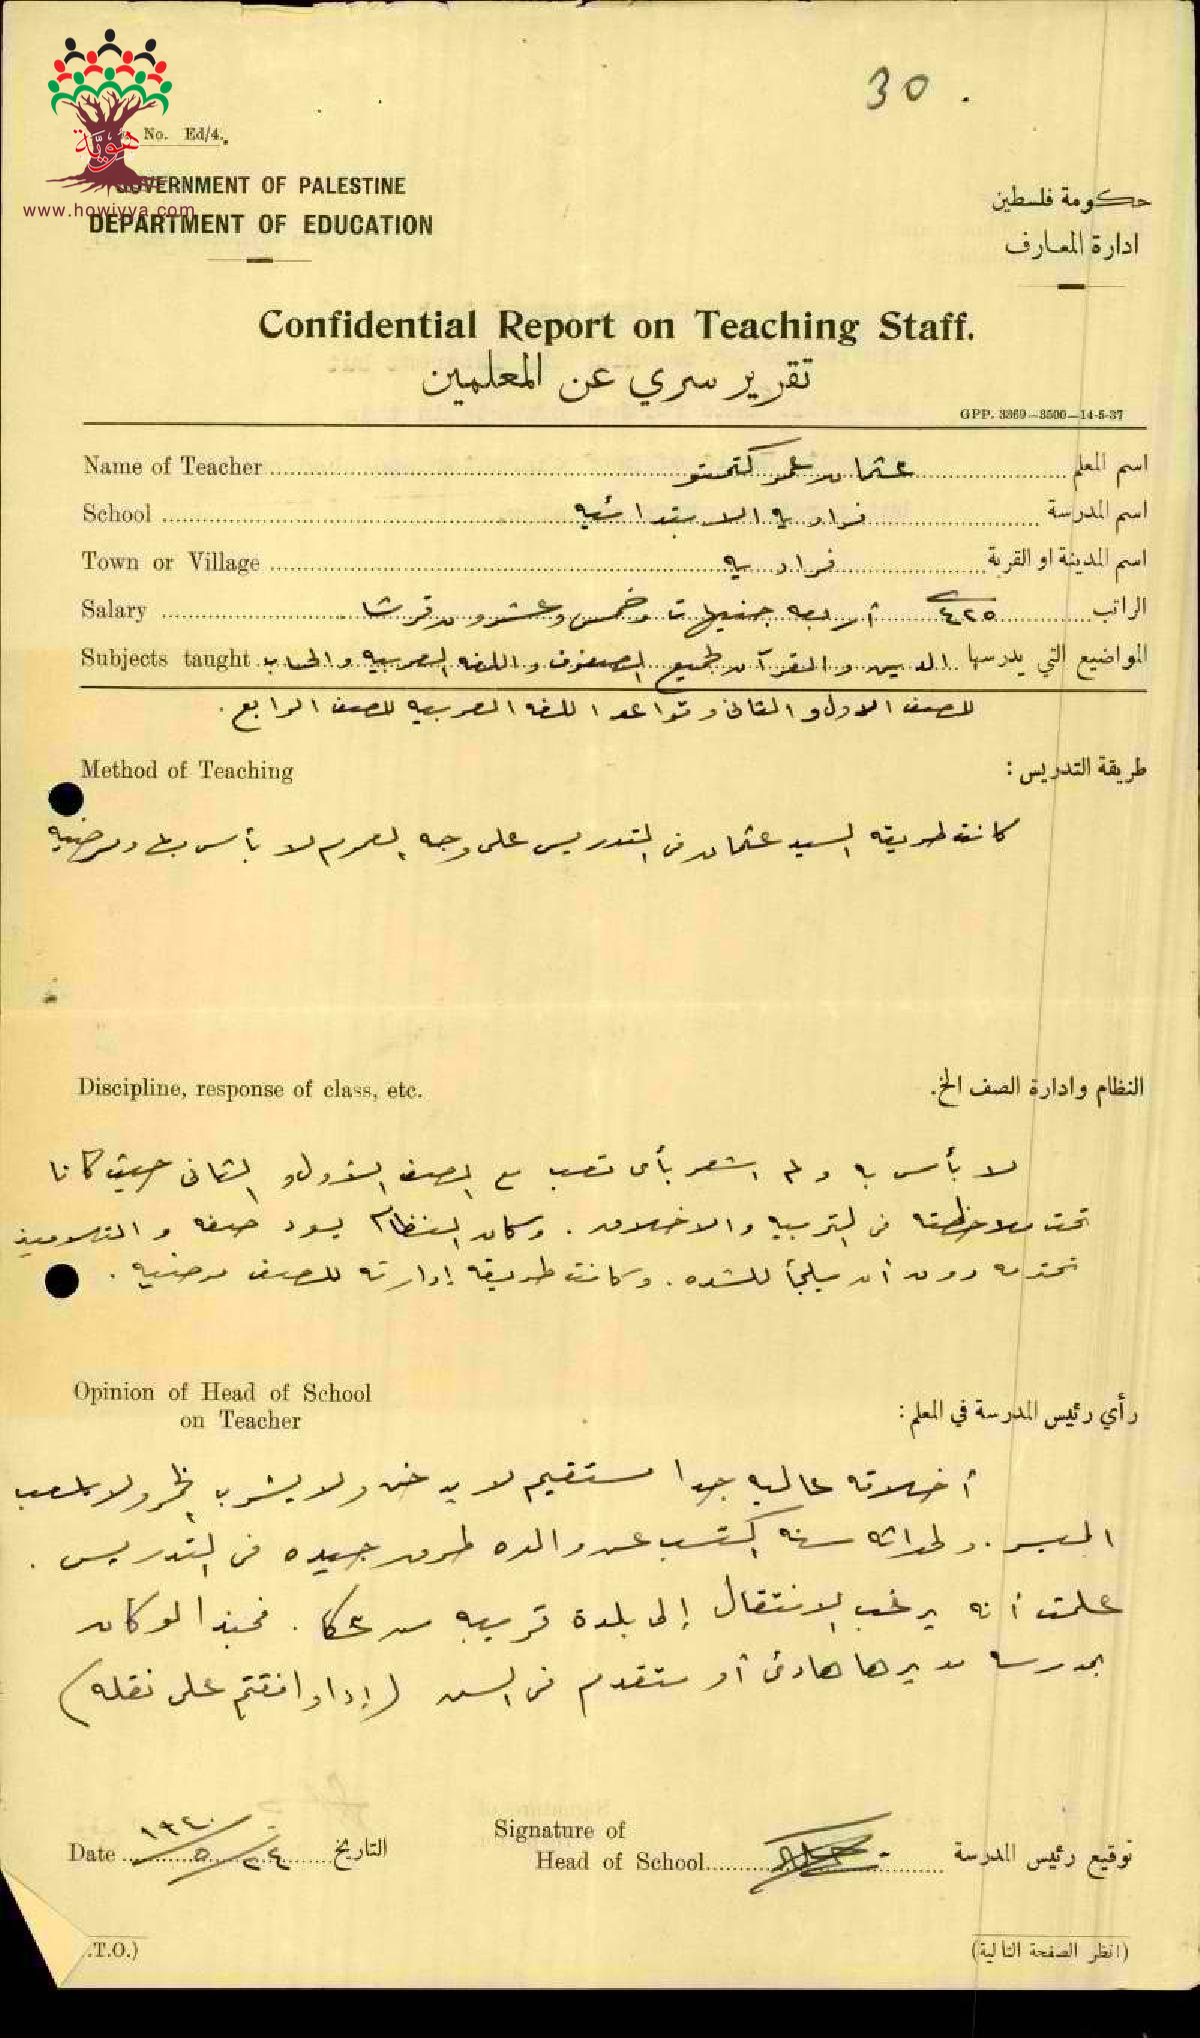 30.
هوية
No. Ed/4.
www.howiyya.com
GOVERNMENT OF PALESTINE
DEPARTMENT OF EDUCATION
حكومة فلسطين
ادارة المعارف
Confidential Report on Teaching Staff.
تقرير سري عن المعلمين
GPP. 3369—3500—14-5-37
Name of Teacher عثمان عمر كتمتو اسم المعلم
School فراديه الابتدائيه اسم المدرسة
Town or Village فراديه اسم المدينة او القرية
Salary ٤٢٥ أربعه جنيهات وخمس وعشرون قرشا الراتب
Subjects taught الدين والقرآن لجميع الصفوف واللغه العربيه والحساب المواضيع التي يدرسها
للصف الاول والثاني وقواعد اللغه العربيه للصف الرابع.
Method of Teaching طريقة التدريس :
كانت طريقة السيد عثمان في التدريس على وجه العموم لا بأس بها ومرضيه
Discipline, response of class, etc. النظام وادارة الصف الخ.
لا بأس به ولم اشعر بأي تعب مع الصف الاول والثاني حيث كانا
تحت ملاحظته في التربيه والاخلاق. وكان النظام يسود صفه والتلاميذ
تحترمه دون أن يلجأ للشده. وكانت طريقة إدارته للصف مرضيه.
Opinion of Head of School
on Teacher
رأي رئيس المدرسة في المعلم :
أخلاقه عاليه جدا مستقيم لا يدخن ولا يشرب الخمر ولا يلعب
الميسر. ولحداثة سنه اكتسب عن والده طرق جيده في التدريس.
علمت أنه يرغب الانتقال إلى بلدة قريبه من عكا. فحبذا لو كان
بمدرسة مديرها هادئ أو متقدم في السن (إذا وافقتم على نقله)
Date ١٩٤٠/٥/٢٤ التاريخ
Signature of
Head of School توقيع رئيس المدرسة
.T.O.)
(انظر الصفحة التالية)